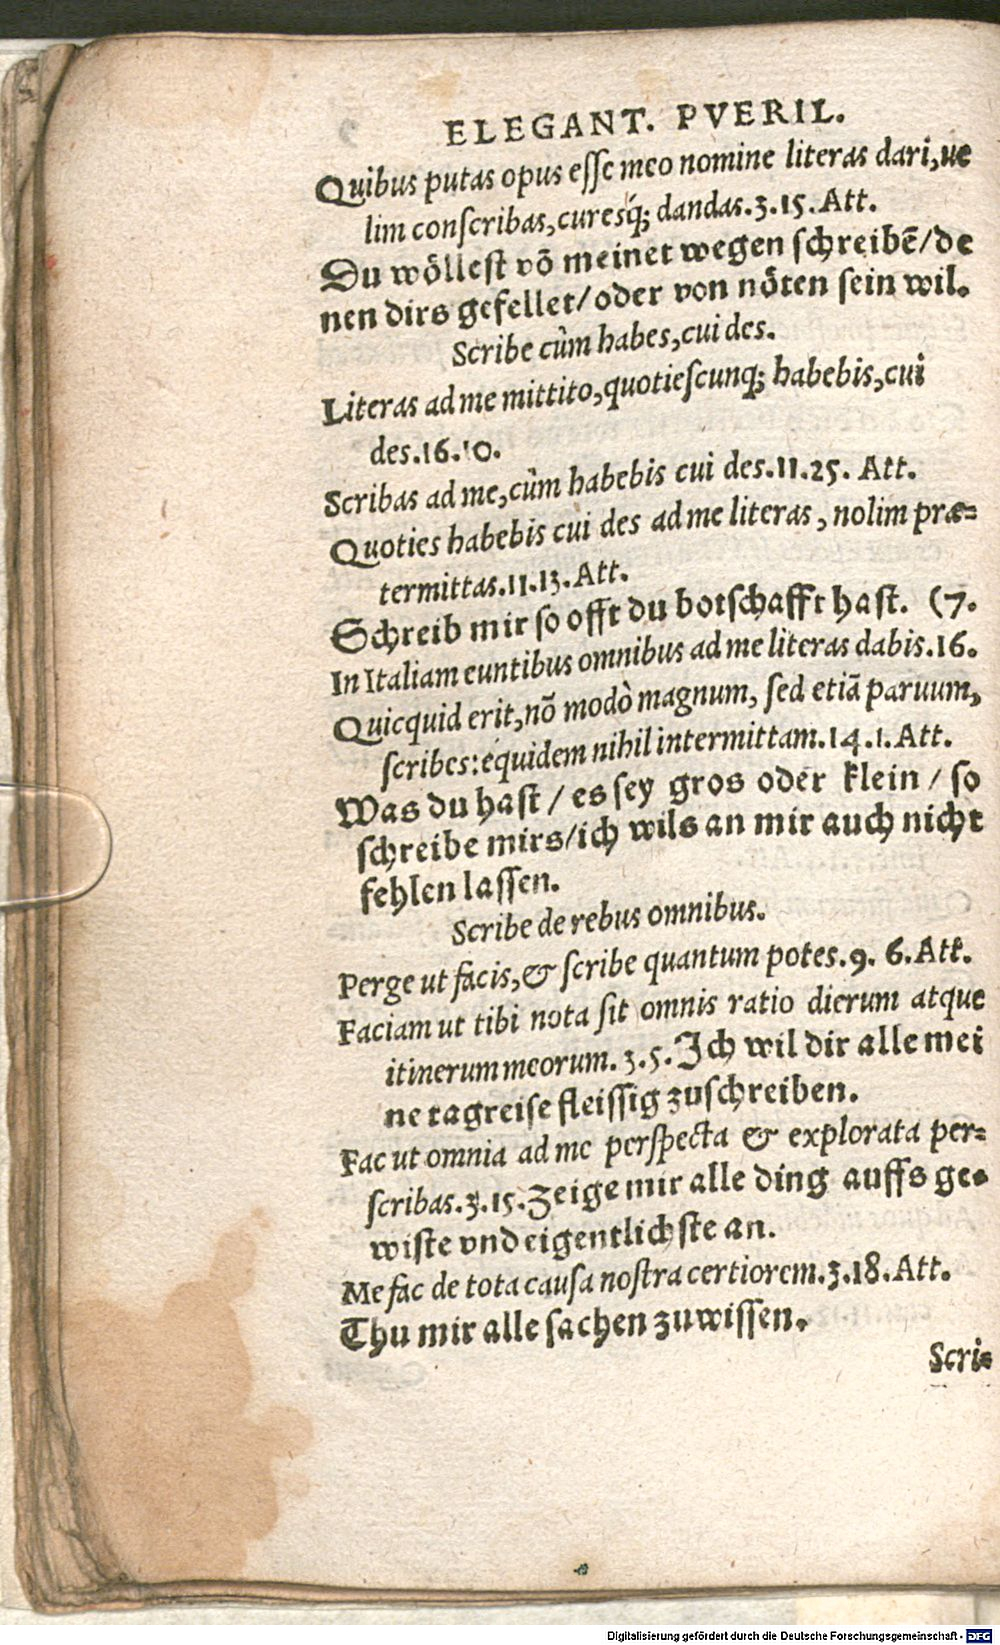 ELEGANT. PVERIL.
Quibus putas opus eſſe meo nomine literas dari, ue
lim conſcribas, curesq́; dandas. 3. 15. Att.
Du wöllest vō meinet wegen schreibē/de
nen dirs gefellet/oder von nöten sein wil.
Scribe cùm habes, cui des.
Literas ad me mittito, quotieſcunq; habebis, cui
des. 16. 10.
Scribas ad me, cùm habebis cui des. 11. 25. Att.
Quoties habebis cui des ad me literas, nolim præ-
termittas. 11. 13. Att.
Schreib mir so offt du botschafft hast. (7.
In Italiam euntibus omnibus ad me literas dabis. 16.
Quicquid erit, nō modò magnum, ſed etiā paruum,
ſcribes: equidem nihil intermittam. 14. 1. Att.
Was du hast / es sey gros oder klein / so
schreibe mirs/ich wils an mir auch nicht
fehlen lassen.
Scribe de rebus omnibus.
Perge ut facis, & ſcribe quantum potes. 9. 6. Att.
Faciam ut tibi nota ſit omnis ratio dierum atque
itinerum meorum. 3. 5. Ich wil dir alle mei
ne tagreise fleissig zuschreiben.
Fac ut omnia ad me perſpecta & explorata per-
ſcribas. 3. 15. Zeige mir alle ding auffs ge-
wiste vnd eigentlichste an.
Me fac de tota cauſa noſtra certiorem. 3. 18. Att.
Thu mir alle sachen zuwissen.
Scri-
Digitalisierung gefördert durch die Deutsche Forschungsgemeinschaft - DFG